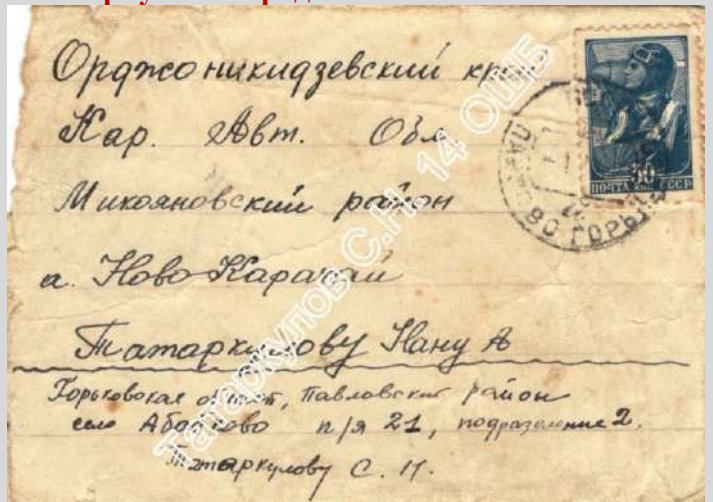 Орджоникидзевский край
Кар. Авт. Обл
Микояновский район
а. Ново Карачай
Татаркулову Нану А
Горьковская област, Павловский район
село Абабково п/я 21, подразделение 2.
Татаркулову С. Н.
Татаркулов С.Н. 14 ОШБ
30
ПОЧТА СССР